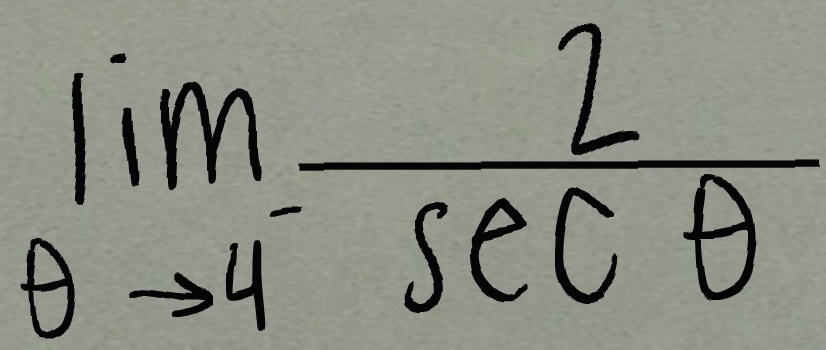 \lim_{\theta \to 4^-} \frac{2}{\sec \theta}